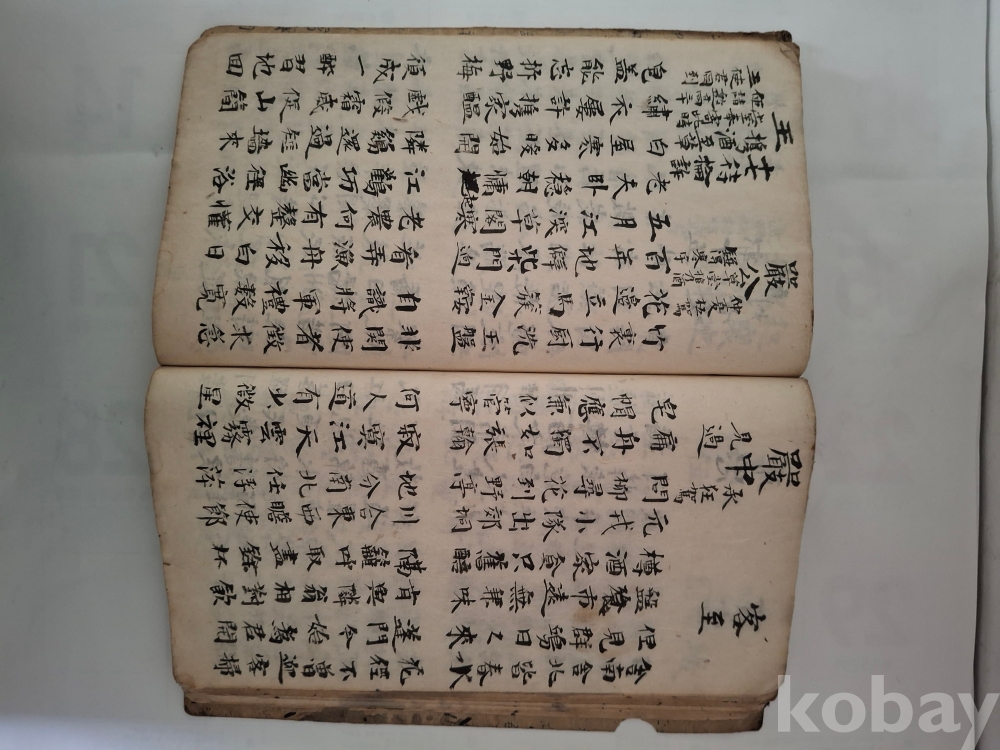 客至
舍南舍北皆春水花徑不曾緣客掃
但見群鷗日日來蓬門今始為君開
盤飧市遠無兼味肯與鄰翁相對飲
樽酒家貧只舊醅隔籬呼取盡餘杯
嚴中丞枉駕見過
元戎小隊出郊坰川合東西瞻使節
問柳尋花到野亭地分南北任浮萍
扁舟不獨如張翰寂寞江天雲霧裡
皂帽應兼似管寧何人道有少微星
嚴公仲夏枉駕草堂
竹裏行廚洗玉盤非關使者徵求急
花邊立馬簇金鞍自識將軍禮數寬
百年地僻柴門迥看弄漁舟移白日
五月江深草閣寒老農何有罄交歡
王十七侍掄許攜酒至草堂奉寄此時使君同到
老夫臥穩朝慵起江鸛巧當幽徑浴
白屋寒多暖始開隣鷄還過短墻來
繡衣屢許攜家醞戲假霜威促山簡
皂蓋能忘折野梅須成一醉習地回
kobay